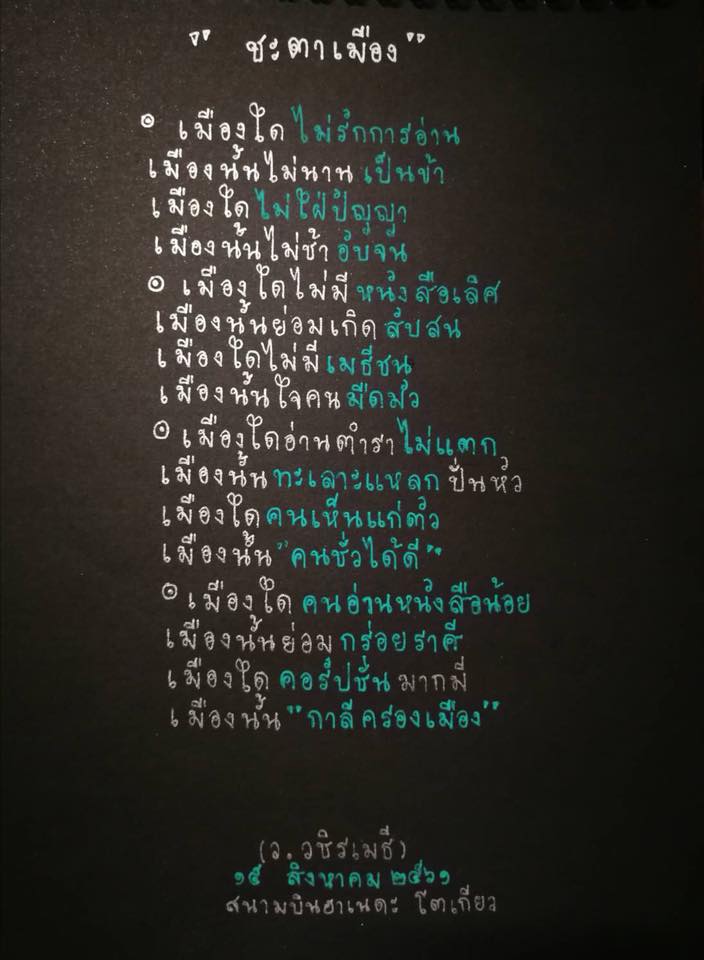 " ชะตาเมือง "
๏ เมืองใด ไม่รักการอ่าน
เมืองนั้นไม่นาน เป็นข้า
เมืองใด ไม่ใฝ่ปัญญา
เมืองนั้นไม่ช้า อับจน
๏ เมืองใดไม่มี หนังสือเลิศ
เมืองนั้นย่อมเกิด สับสน
เมืองใดไม่มี เมธีชน
เมืองนั้นใจคน มืดมัว
๏ เมืองใดอ่านตำรา ไม่แตก
เมืองนั้น ทะเลาะแหลก ปั่นหัว
เมืองใด คนเห็นแก่ตัว
เมืองนั้น "คนชั่วได้ดี"
๏ เมืองใด คนอ่านหนังสือน้อย
เมืองนั้นย่อม กร่อยราศี
เมืองใด คอรัปชั่น มากมี
เมืองนั้น "กาลีครองเมือง"
(ว.วชิรเมธี)
๑๕ สิงหาคม ๒๕๖๑
สนามบินฮาเนดะ โตเกียว